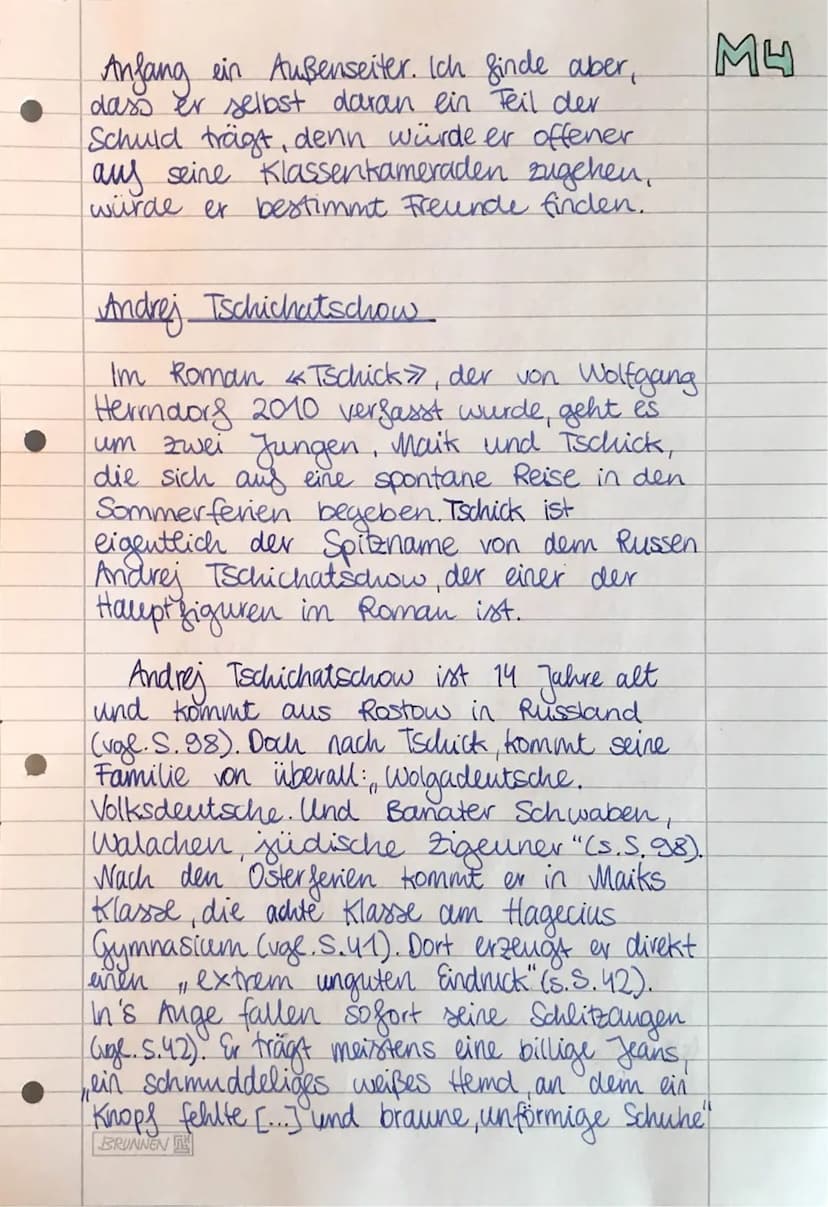 M4
Anfang ein Außenseiter. Ich finde aber,
dass er selbst daran ein Teil der
Schuld trägt, denn würde er offener
auf seine Klassenkameraden zugehen,
würde er bestimmt Freunde finden.
Andrej Tschichatschow
Im Roman «Tschick», der von Wolfgang
Herrndorf 2010 verfasst wurde, geht es
um zwei Jungen, Maik und Tschick,
die sich auf eine spontane Reise in den
Sommerferien begeben. Tschick ist
eigentlich der Spitzname von dem Russen
Andrej Tschichatschow, der einer der
Hauptfiguren im Roman ist.
Andrej Tschichatschow ist 14 Jahre alt
und kommt aus Rostow in Russland
(vgl. S. 98). Doch nach Tschick, kommt seine
Familie von überall: „Wolgadeutsche.
Volksdeutsche. Und Banater Schwaben,
Walachen, jüdische Zigeuner" (s. S. 98).
Nach den Osterferien kommt er in Maiks
Klasse, die achte Klasse am Hagecius
Gymnasium (vgl. S. 41). Dort erzeugt er direkt
einen „extrem unguten Eindruck" (s. S. 42).
In's Auge fallen sofort seine Schlitzaugen
(vgl. S. 42). Er trägt meistens eine billige Jeans,
„ein schmuddeliges weißes Hemd, an dem ein
Knopf fehlte [...]" und braune, unförmige Schuhe"
BRUNNEN